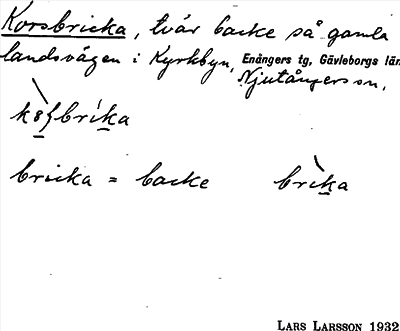 Korsbricka, tvär backe på gamla
landsvägen i Kyrkbyn, Enångers tg, Gävleborgs län
Njutångers sn.
bricka = backe brìka
LARS LARSSON 1932